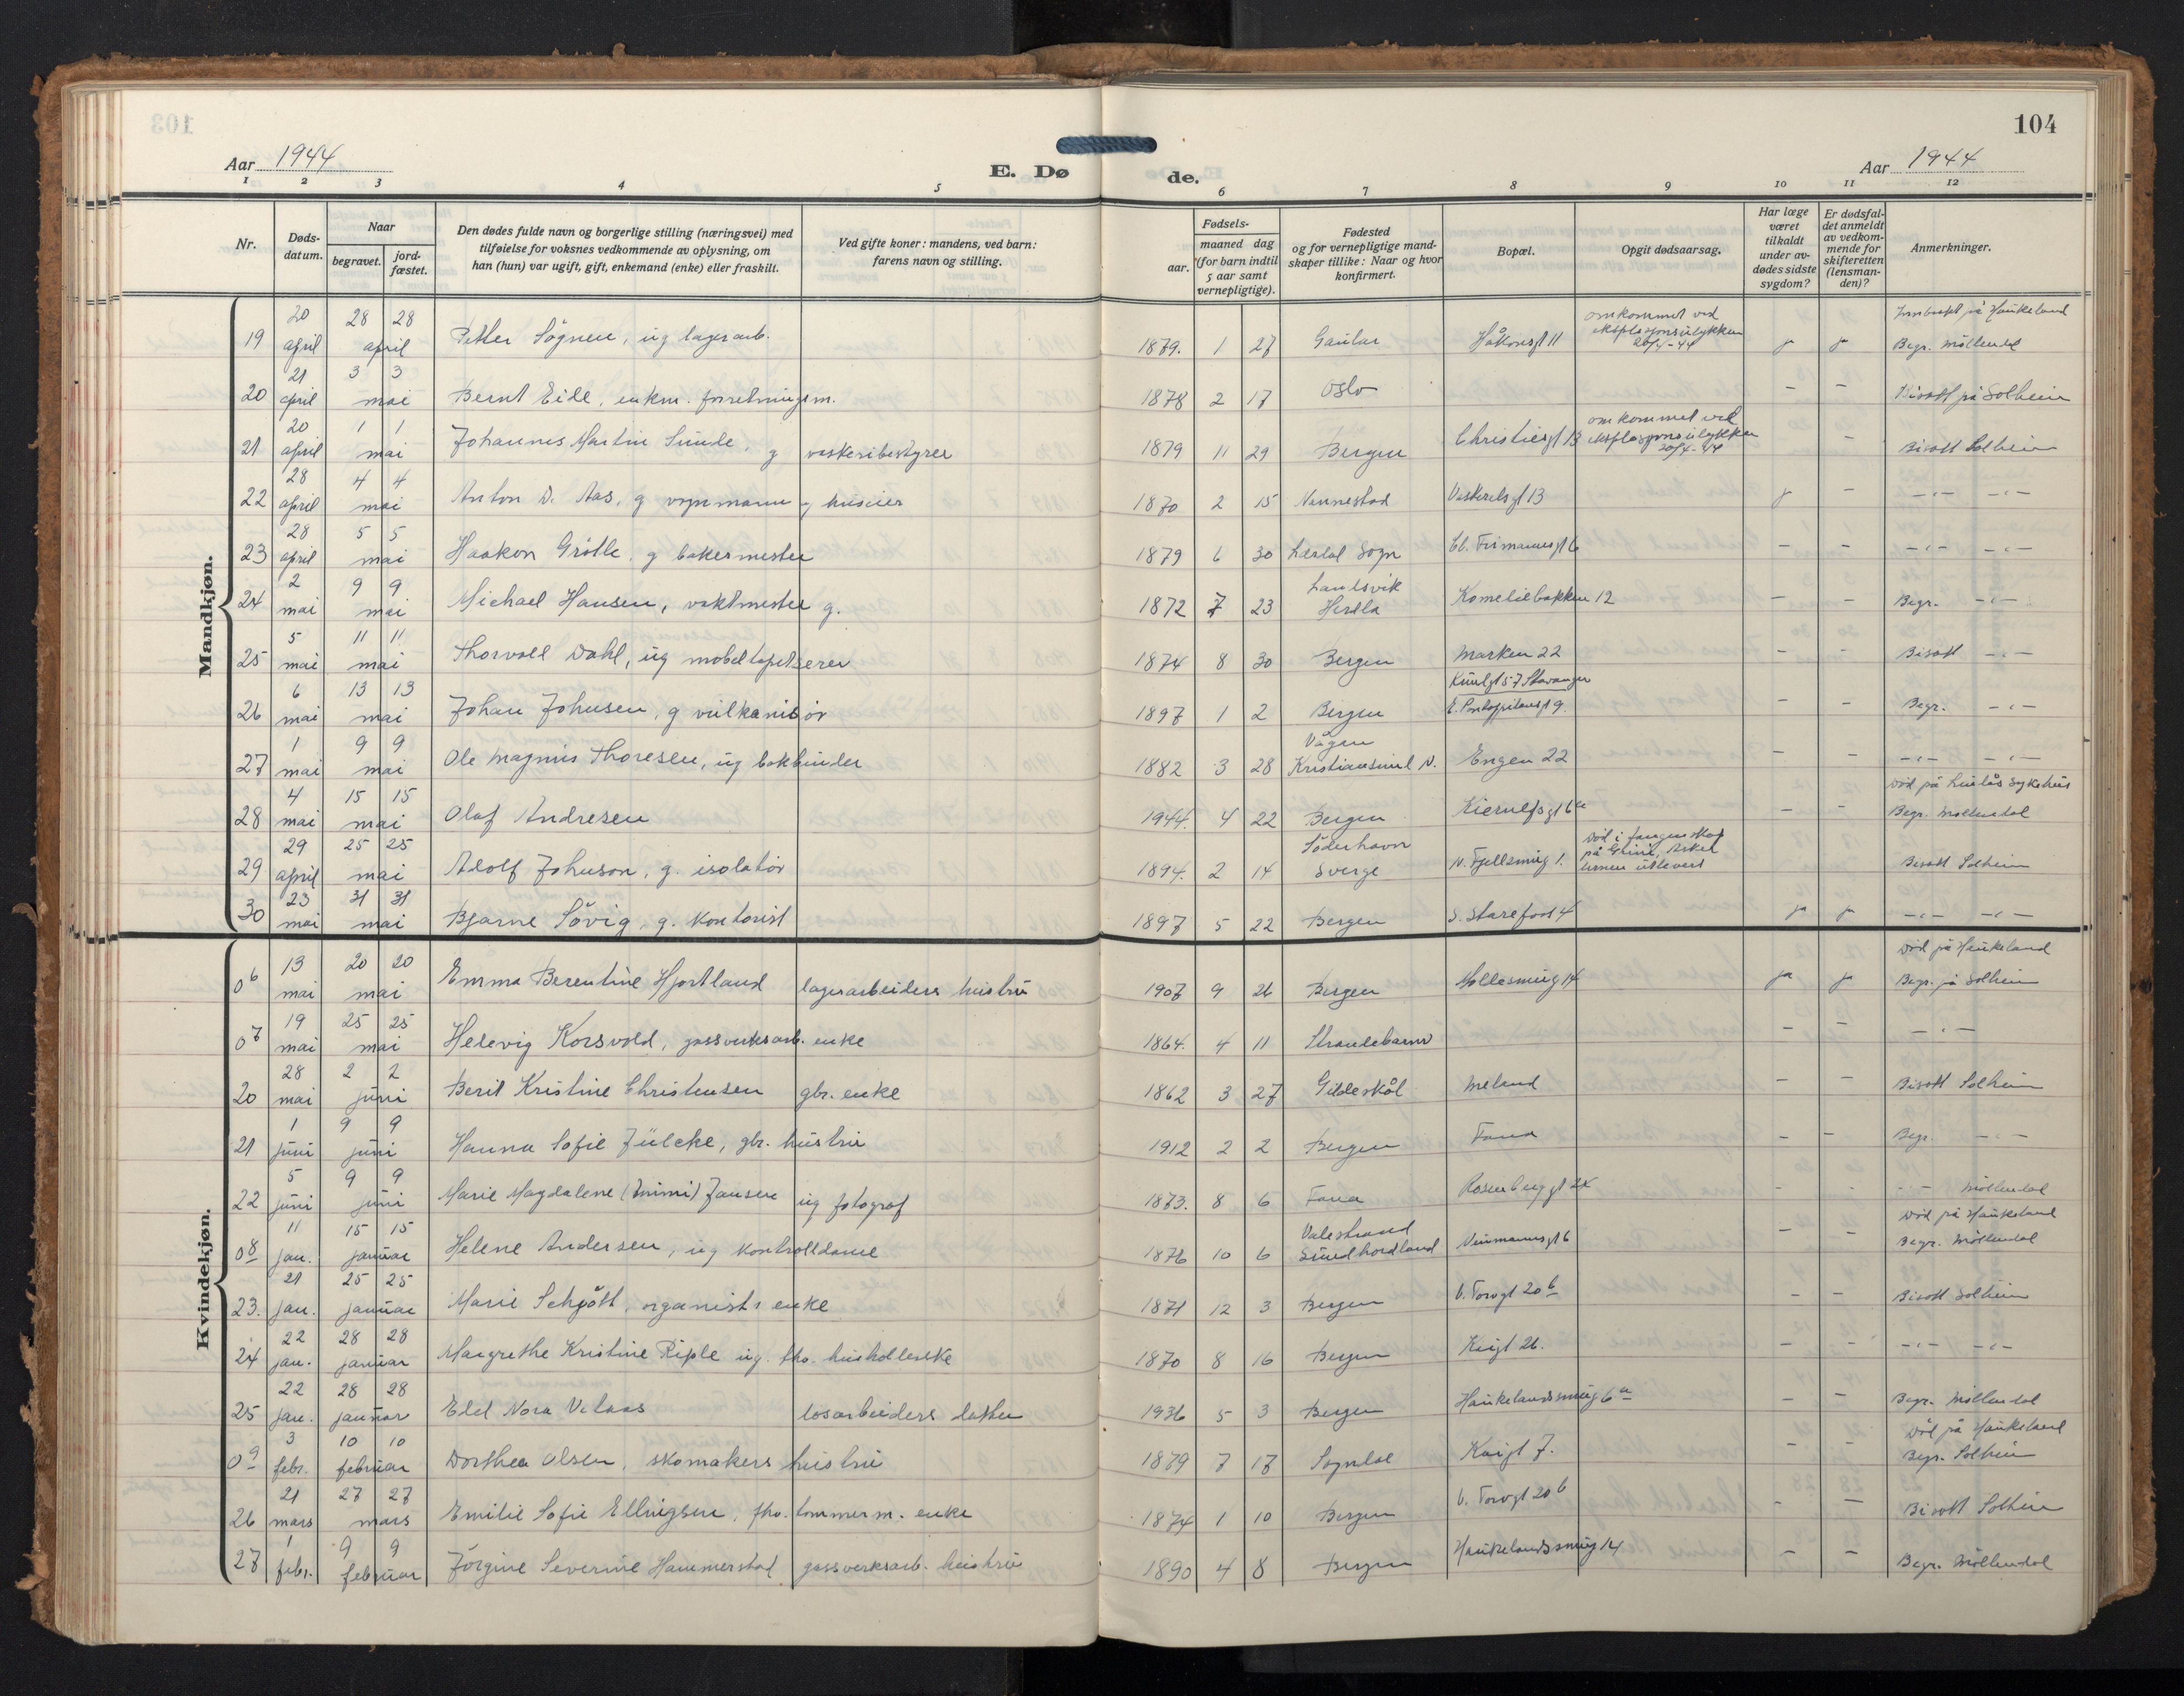 104
Aar 1944
E. Dø de.
Aar 1944
1 2 3 4 5 6 7 8 9 10 11 12
Nr.
Døds-datum.
Naar
begravet.
jord-fæstet.
Den dødes fulde navn og borgerlige stilling (næringsvei) med
tilføielse for voksnes vedkommende av oplysning, om
han (hun) var ugift, gift, enkemand (enke) eller fraskilt.
Ved gifte koner: mandens, ved barn:
farens navn og stilling.
Fødsels-
aar.
maaned dag
(for barn indtil
5 aar samt
vernepligtige).
Fødested
og for vernepligtige mand-
skaper tillike: Naar og hvor
konfirmert.
Bopæl.
Opgit dødsaarsag.
Har læge
været
tilkaldt
under av-
dødes sidste
sygdom?
Er dødsfal-
det anmeldt
av vedkom-
mende for
skifteretten
(lensman-
den)?
Anmerkninger.
Mandkjøn.
19 20 april 28 28 april Petter Sögnen, ug lagerarb. 1879. 1 27 Gaular Håkonsgt 11 omkommet ved eksplosjonsulykken 20/4-44 j j Innbrakt på Haukeland Begr. Möllendal
20 21 april 3 3 mai Bernt Eide, enkm. forretningsm. 1878 2 17 Oslo – – Bisatt på Solheim
21 20 april 1 1 mai Johannes Martin Sunde, g vaskeribestyrer 1879 11 29 Bergen Christiesgt 13 omkommet ved eksplosjonsulykken 20/4-44 – Bisatt Solheim
22 28 april 4 4 mai Anton D. Aas, g vognmann og huseier 1870 2 15 Nannestad Vestrelsgt 13 j – -"- -"-
23 28 april 5 5 mai Haakon Grötte, g bakermester 1879 6 30 Lærdal Sogn Cl. Frimannsgt 6 – – -"- -"-
24 2 mai 9 9 mai Michael Hansen, vaktmester g. 1872 7 23 Landsvik Herdla Komediebakken 12 – – Begr. -"-
25 5 mai 11 11 mai Thorvald Dahl, ug møbeltapetserer 1874 8 30 Bergen Marken 22 – – Bisatt -"-
26 6 mai 13 13 mai Johan Johnsen, g vulkanisør 1897 1 2 Bergen 57 Stavanger E. Pontopidansgt 9. – – Begr. -"-
27 1 mai 9 9 mai Ole Magnus Thoresen, ug bokbinder 1882 3 28 Vågen Kristiansund N. Engen 22 – – -"- -"-
28 4 mai 15 15 mai Olaf Andresen 1944. 4 22 Bergen Kierulfsgt 6a – – Død på Luelås sykehus Begr. Möllendal
29 29 april 25 25 mai Adolf Johnson, g. isolatör 1894. 2 14 Söderhavn Sverge N. Fjellsmug 1. Död i fangenskap på Grini, Asker urnen utlevert Bisatt Solheim
30 23 mai 31 31 mai Bjarne Sövig, g. kontorist 1897 5 22 Bergen S. Starefoss 4 ja ja -"- -"-
Kvindekjøn.
06 13 mai 20 20 mai Emma Berentine Hjortland lagerarbeiders hustru 1907 9 26 Bergen Mollesmug 14 ja ja Död på Haukeland Begr. på Solheim
07 19 mai 25 25 mai Helevig Korsvold, gassverksarb. enke 1864. 4 11 Strandebarm – – -"-
20 28 mai 2 2 juni Berit Kristine Christensen gbr. enke 1862 3 27 Gildeskål Meland – – Bisatt Solheim
21 1 juni 9 9 juni Hanna Sofie Jülcke, gbr. hustru 1912 2 2 Bergen Fana – – Begr. -"-
22 5 juni 9 9 juni Marie Magdalene (Mimi) Jansen ug fotograf 1873. 8 6 Fana Rosenberggt 24 - - - - Möllendal
08 11 jan. 15 15 januar Helene Andersen, ug kontrolldame 1876 10 6 Valestrand Sundhordland Neumannsgt 6 – – Död på Haukeland Begr. Möllendal
23. 21 jan. 25 25 januar Marie Schjött, organists enke 1871 12 3 Bergen V. Torvgt 20b – – Bisatt Solheim
24 22 jan. 28 28 januar Margrethe Kristine Riple ug. fhv. husholderske 1870 8 16 Bergen Kaigt 26. – – -"- -"-
25 22 jan. 28 28 januar Eldd Nora Velaas løsarbeiders datter 1936 5 3 Bergen Haukelandssmug 6a – – Begr. Möllendal
09 3 febr. 10 10 februar Dorthea Olsen, skomakers hustru 1879 7 17 Sogndal Kaigt 7. – – Död på Haukeland Begr. Solheim
26 21 mars 27 27 mars Emilie Sofie Ellingsen, fhv. tömmerm. enke 1874 1 10 Bergen V. Torvgt 20b – – Bisatt Solheim
27 1 febr. 9 9 februar Jörgine Severine Hammerstad gassverksarb. hustru 1890 4 8 Bergen Haukelandssmug 14 – – Begr. Möllendal